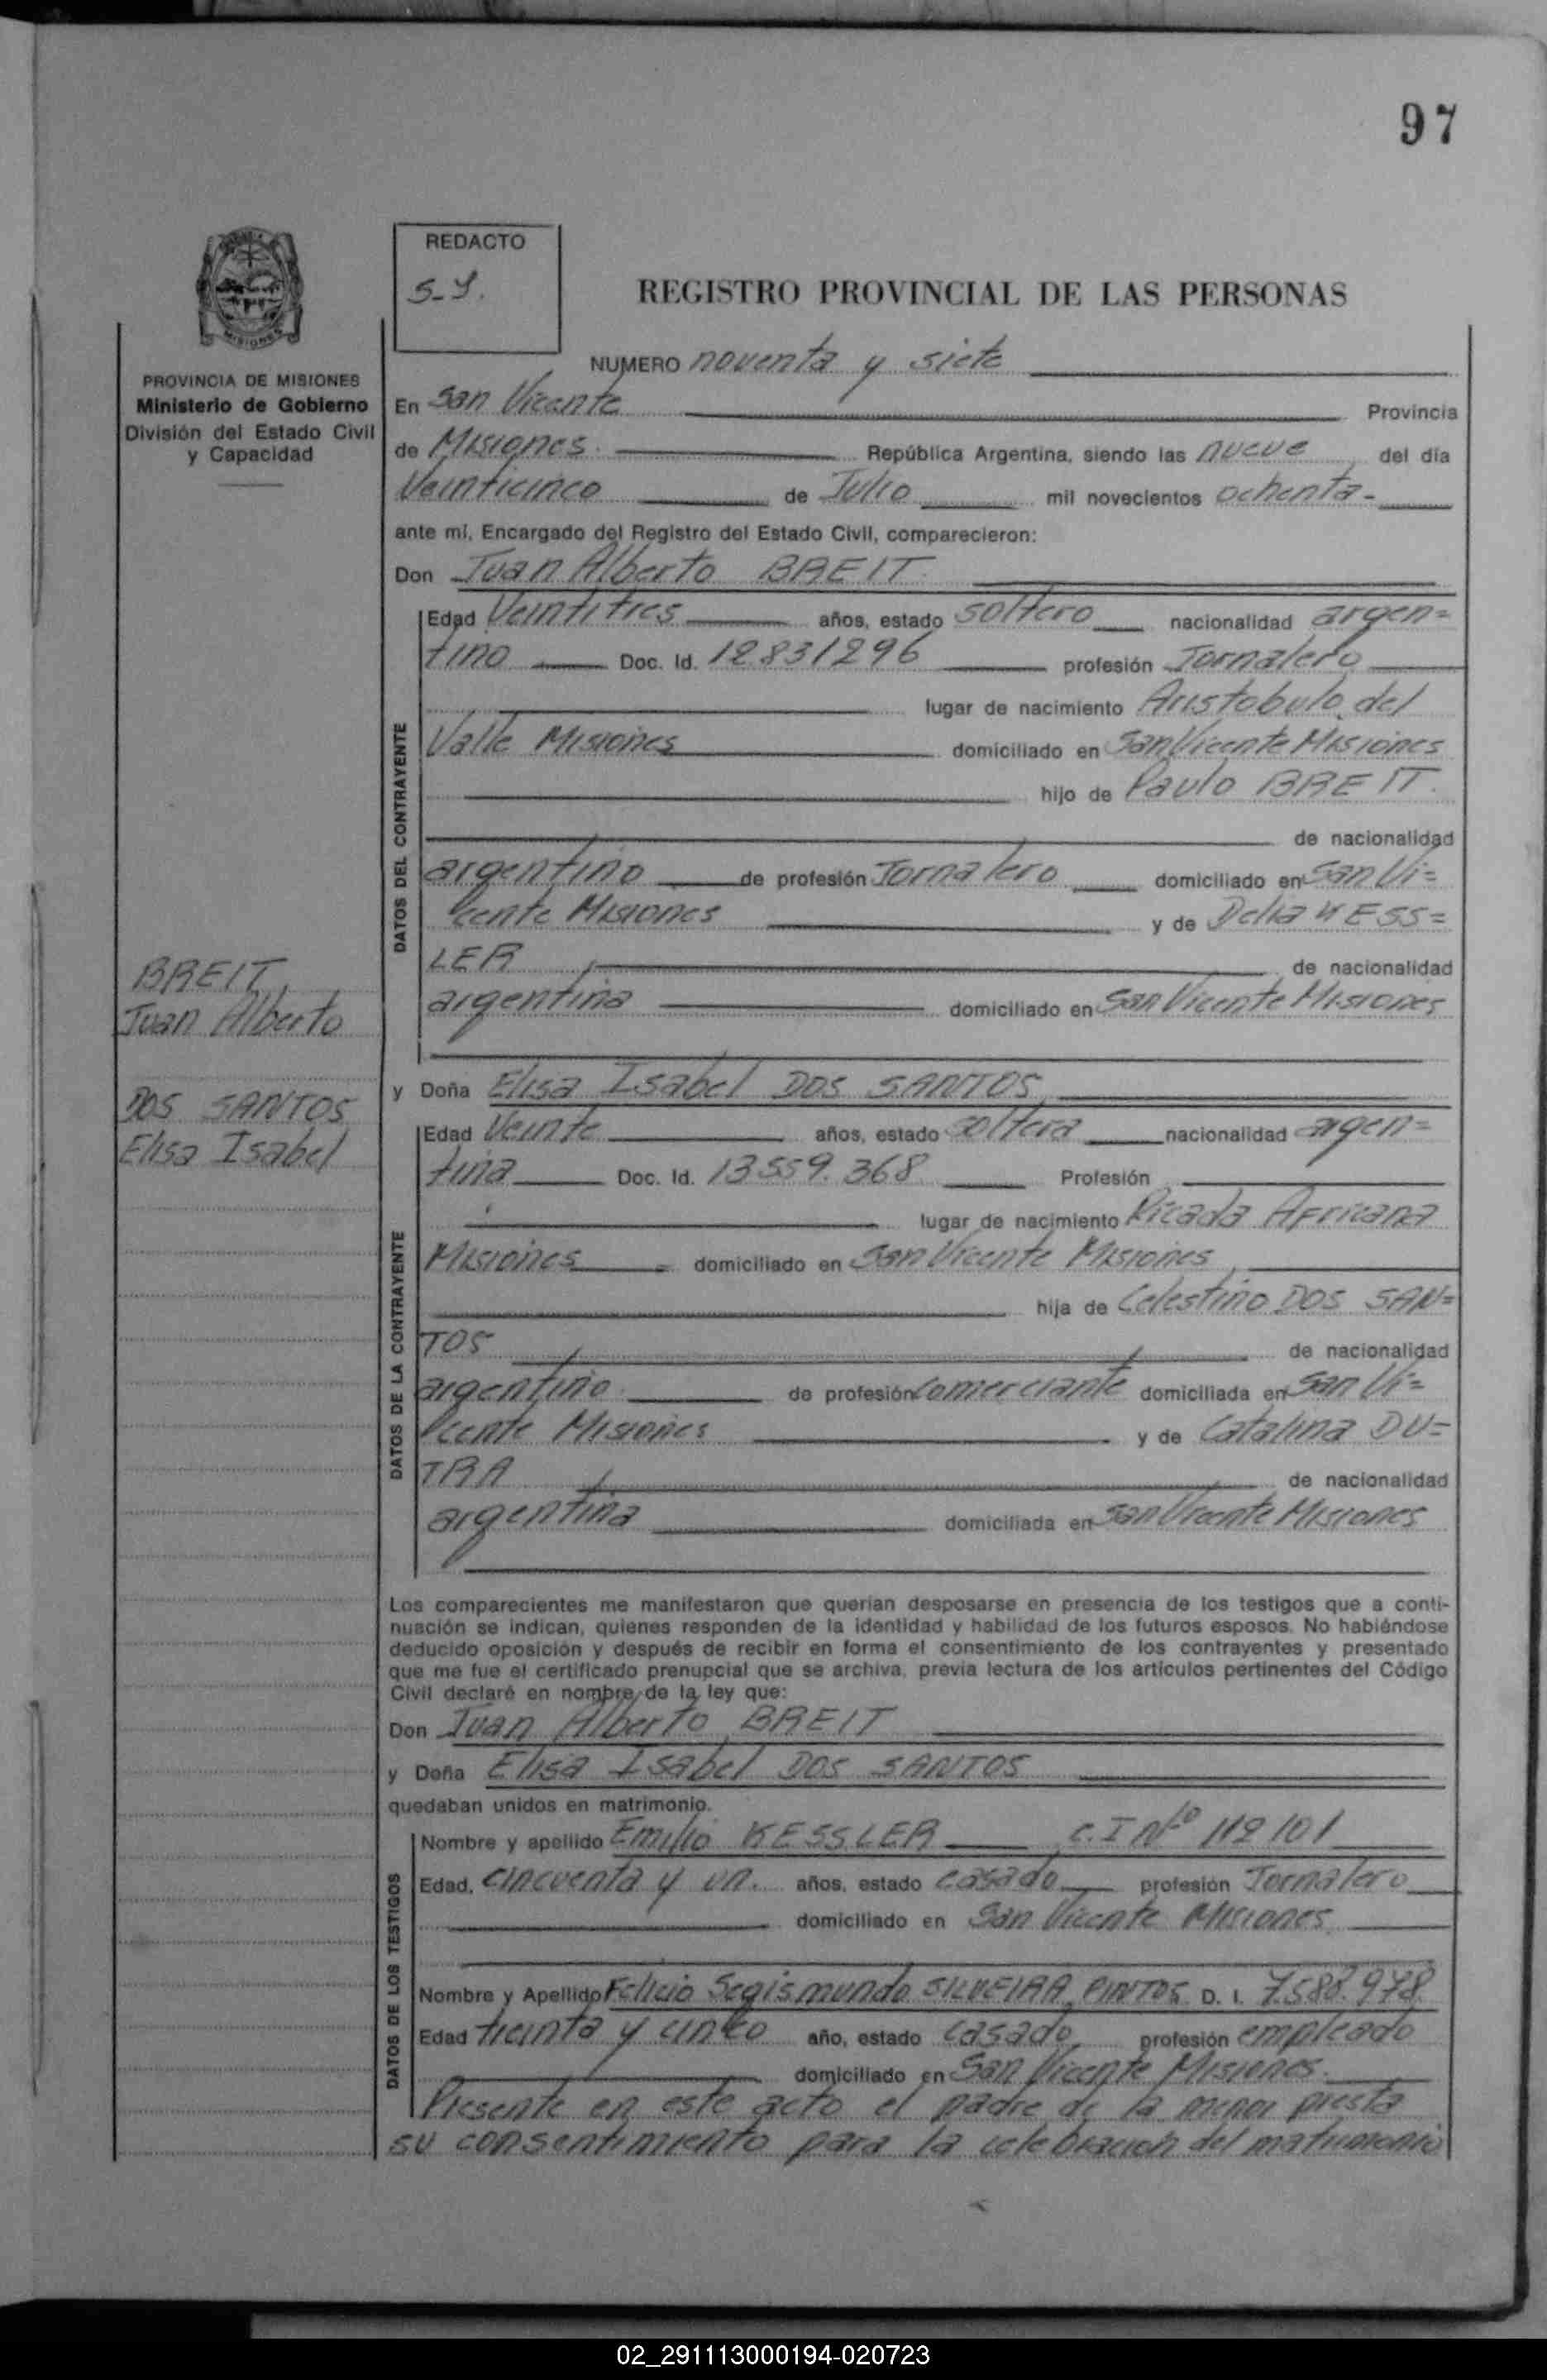 97
REDACTO
S-J.
REGISTRO PROVINCIAL DE LAS PERSONAS
MISIONES
PROVINCIA DE MISIONES
Ministerio de Gobierno
División del Estado Civil
y Capacidad
NUMERO noventa y siete
En San Vicente Provincia
de Misiones. República Argentina, siendo las nueve del día
Veinticinco de Julio mil novecientos ochenta-
ante mí, Encargado del Registro del Estado Civil, comparecieron:
Don Juan Alberto BREIT.
DATOS DEL CONTRAYENTE
Edad Veintitres años, estado soltero nacionalidad argen=
tino Doc. Id. 12831296 profesión Jornalero
lugar de nacimiento Aristobulo del
Valle Misiones domiciliado en San Vicente Misiones
hijo de Paulo BREIT.
de nacionalidad
argentino de profesión Jornalero domiciliado en San Vi=
cente Misiones y de Delia KESS=
LER de nacionalidad
argentina domiciliado en San Vicente Misiones
BREIT,
Juan Alberto
DOS SANTOS
Elisa Isabel
y Doña Elisa Isabel DOS SANTOS
DATOS DE LA CONTRAYENTE
Edad Veinte años, estado soltera nacionalidad argen=
tina Doc. Id. 13559.368 Profesión
lugar de nacimiento Picada Africana
Misiones domiciliado en San Vicente Misiones
hija de Celestino DOS SAN=
TOS de nacionalidad
argentino de profesión Comerciante domiciliada en San Vi=
cente Misiones y de Catalina DU=
TRA de nacionalidad
argentina domiciliada en San Vicente Misiones
Los comparecientes me manifestaron que querían desposarse en presencia de los testigos que a conti-
nuación se indican, quienes responden de la identidad y habilidad de los futuros esposos. No habiéndose
deducido oposición y después de recibir en forma el consentimiento de los contrayentes y presentado
que me fue el certificado prenupcial que se archiva, previa lectura de los artículos pertinentes del Código
Civil declaré en nombre de la ley que:
Don Juan Alberto BREIT
y Doña Elisa Isabel DOS SANTOS
quedaban unidos en matrimonio.
DATOS DE LOS TESTIGOS
Nombre y apellido Emilio KESSLER C.I Nº 112101
Edad, cincuenta y un. años, estado casado profesión Jornalero
domiciliado en San Vicente Misiones
Nombre y Apellido Felicio Segismundo SILVEIRA PINTOS D. I. 7.588.978
Edad treinta y cinco año, estado casado profesión empleado
domiciliado en San Vicente Misiones.
Presente en este acto el padre de la menor presta
su consentimiento para la celebracion del matrimonio
02_291113000194-020723